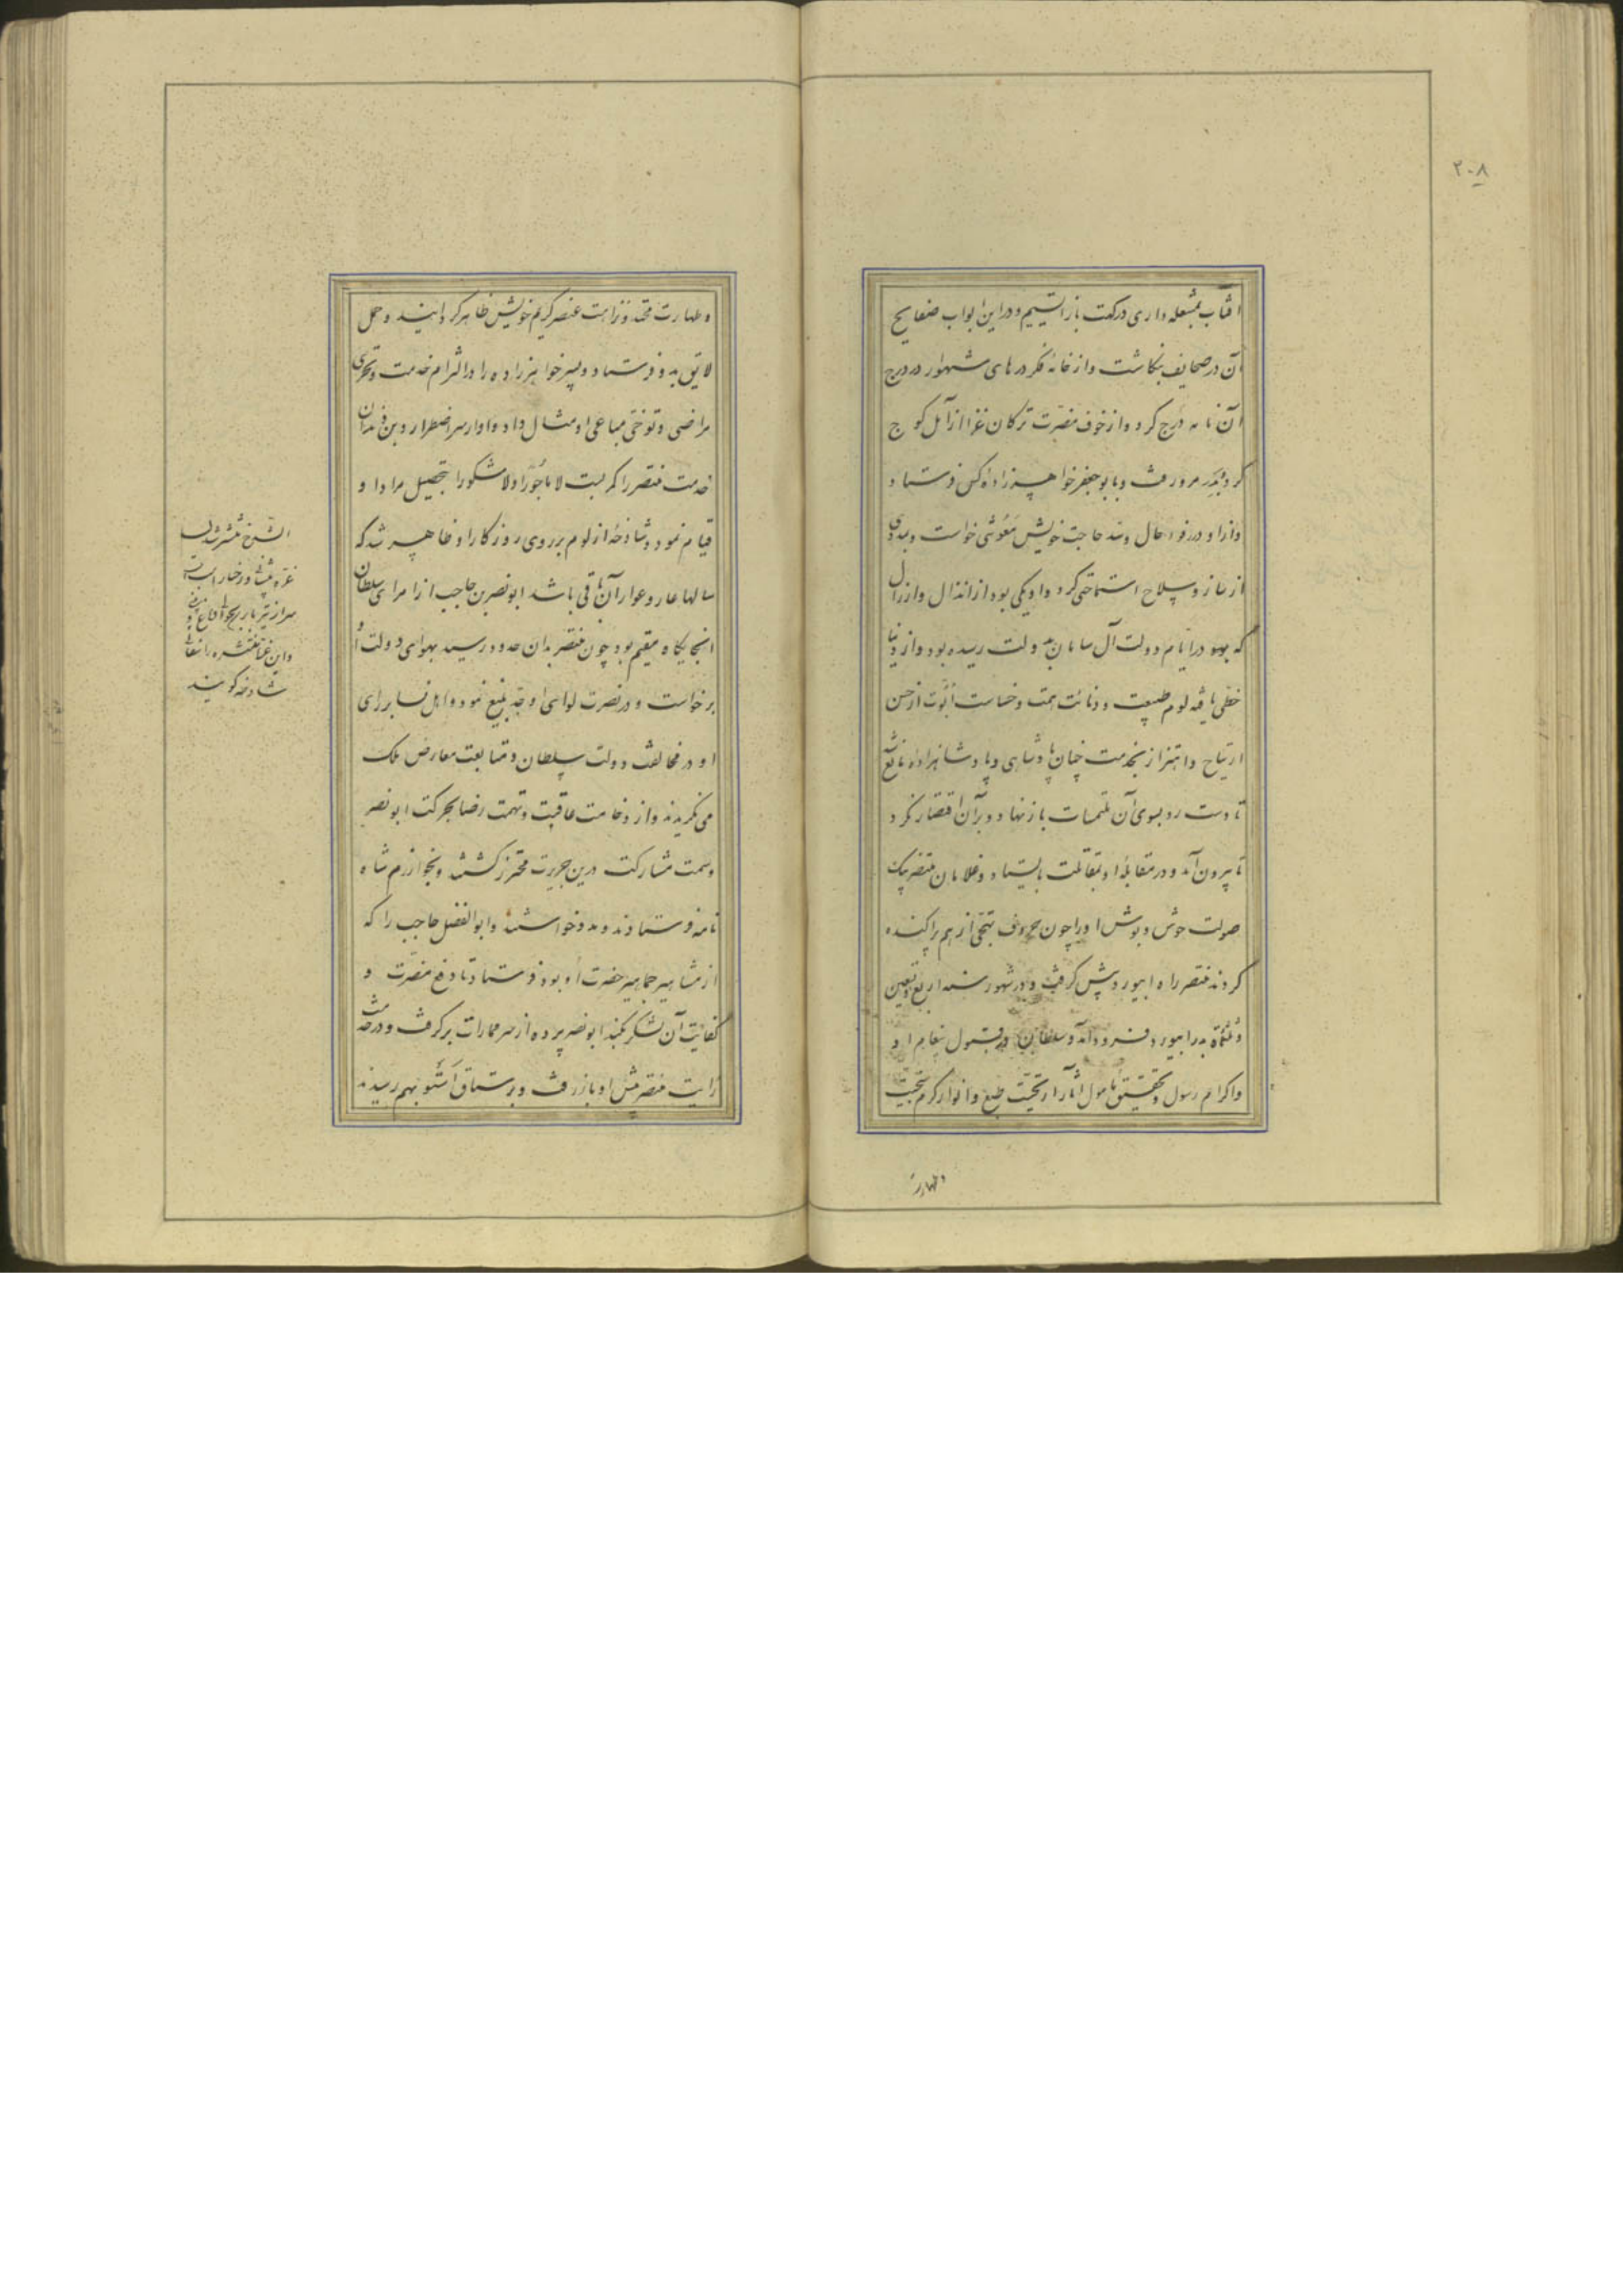 ۲۰۸
آفتاب بمشعله داری در کفت باز ایستیم و در این ابواب صفایح
آن در صحایف بنگاشت و از خانه فکر درهای شهوار در درج
آن نامه درج کرد و از خوف مضرت ترکان غز از آمل کوچ
کرد و بدر مرو رفت و بابو جعفر خواهرزاده کس فرستاد
و از او در رفو حال و سد حاجت خویش معونتی خواست و بمددی
از ساز و سلاح استماحتی کرد و او یکی بود از انذال و ارذال
که بهو در ایام دولت آل سامان بدولت رسیده بود و از دنیا
حظی یافته لوم طبیعت و دنائت همت و خساست ابوت از حسن
ارتیاح و اهتزاز بخدمت چنان پادشاهی و پادشاهزاده مانع شد
تا دست رد بسوی آن ملتمسات باز نهاد و بر آن اقتصار نکرد
تا بیرون آمد و در مقابله او بمقاتلت بایستاد و غلامان منتصر بیک
صولت حوش و بوش او را چون حروف تهجی از هم پراکنده
کردند منتصر راه ابیورد پیش گرفت و در شهور سنه اربع و تسعین
و ثلثمائة بدر ابیورد فرود آمد و سلطان در قبول پیغام او
و اکرام رسول و تحقیق مأمول آثار اریحیت طبع و انوار کرم سجیت
و طهارت
و طهارت محتد و نزاهت عنصر کریم خویش ظاهر گردانید و حمل
لایق بدو فرستاد و پسر خواهرزاده را در التزام خدمت و تحری
مراضی و توخی مساعی او مثال داد و او از سر اضطرار و بن دندان
خدمت منتصر را کمر بست لا مأجورا و لا مشکورا بتحصیل مراد او
قیام نمود و شادخه از لوم بر روی روزگار او ظاهر شد که
سالها عار و عوار آن باقی باشد ابو نصر بن حاجب از امرای سلطان
انجایگاه مقیم بود چون منتصر بدان حدود رسید بهوای دولت او
برخواست و در نصرت لوای او جد بلیغ نمود و اهل نسا بر رای
او در مخالفت دولت سلطان و متابعت معارض ملک
می نگریدند و از وخامت عاقبت و تهمت رضا بحرکت ابو نصر
و سمت مشارکت درین جریرت محترز گشتند و بخوارزم شاه
نامه فرستادند و مدد خواستند و ابو الفضل حاجب را که
از مشاهیر جماهیر حضرت او بود فرستاد تا دفع مضرت و
کفایت آن لشکر بکند ابو نصر پرده از سر ممارات برگرفت و در خدمت
رایت منتصر پیش او باز رفت و برستاق استو بهم رسیدند
غره پیشانی و رخسار است
شادخه گویند